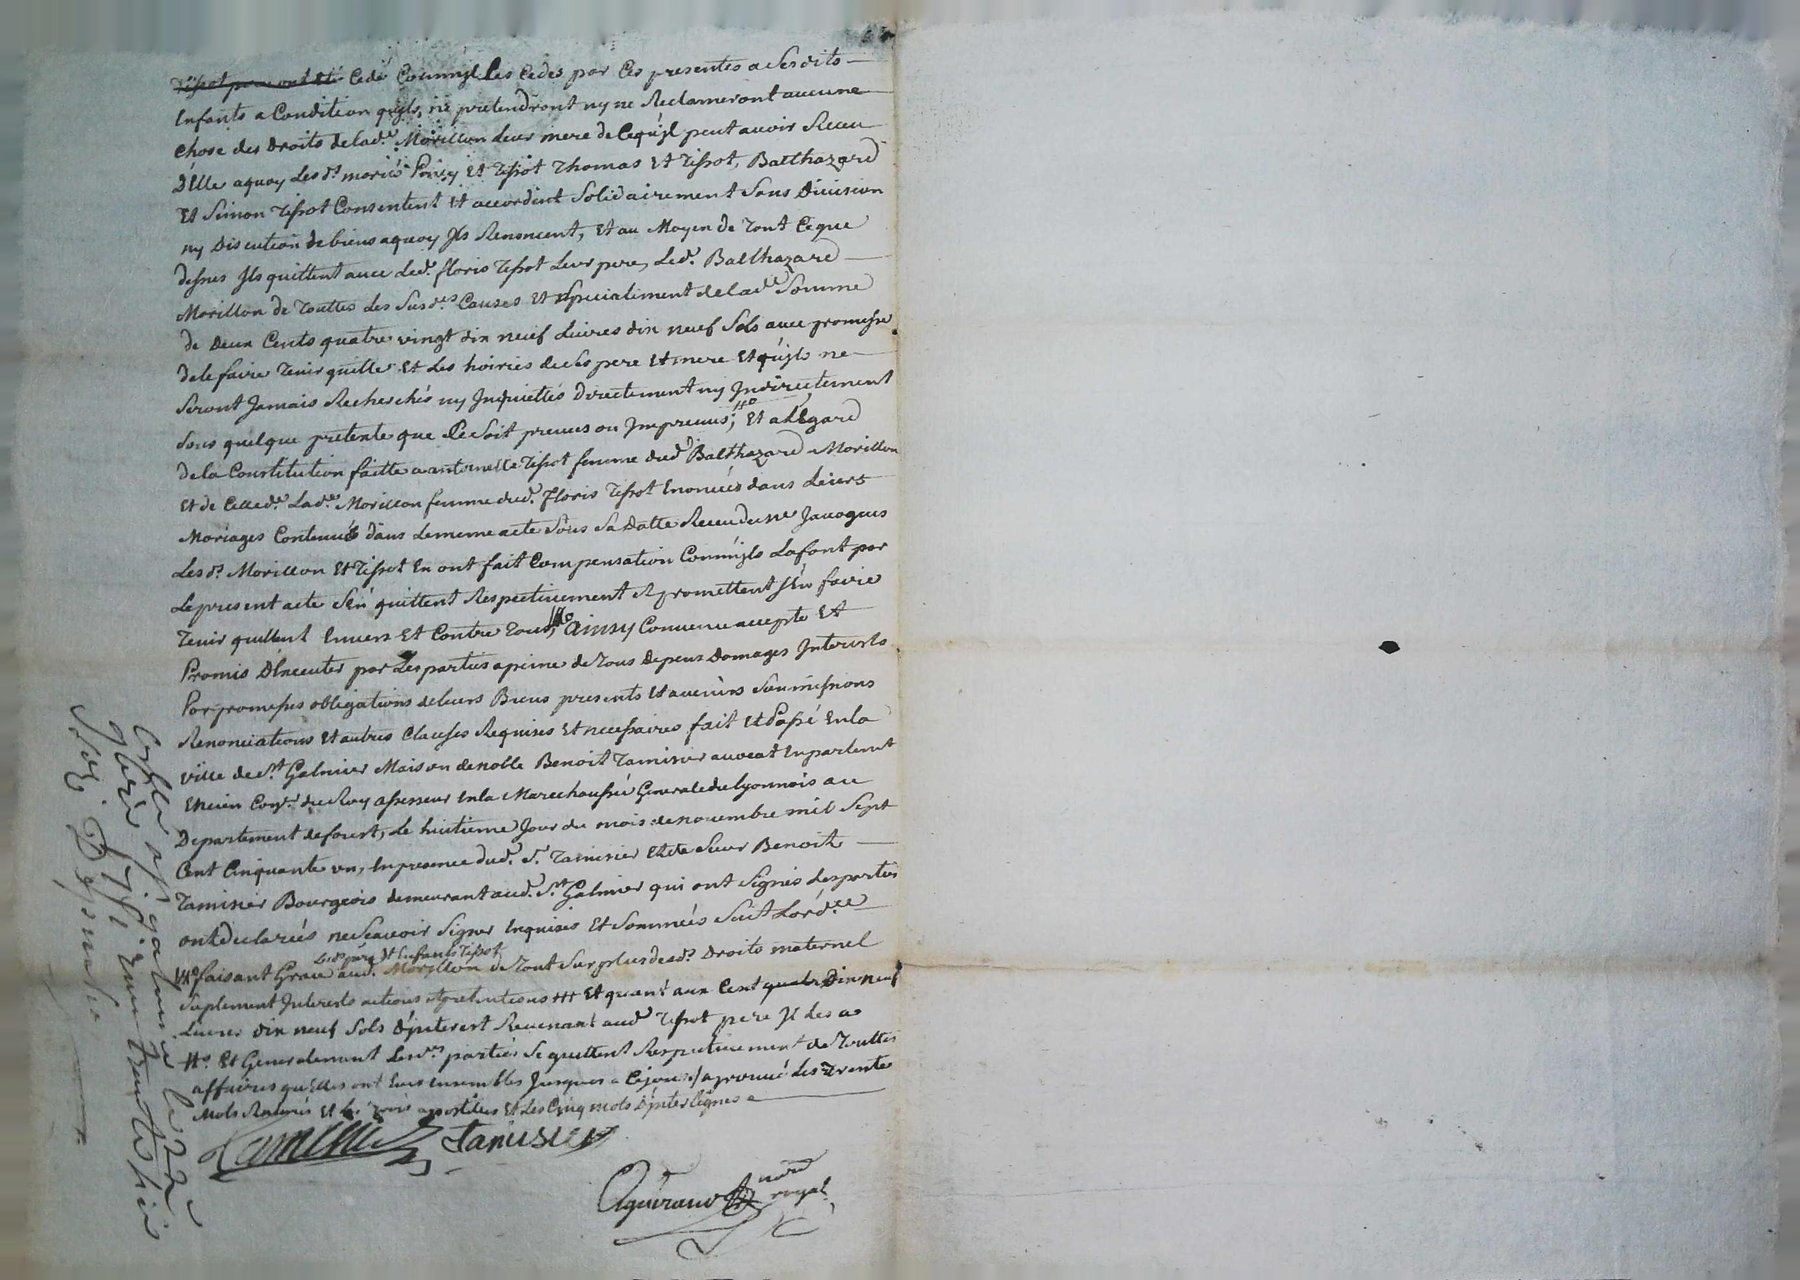 Tissot pere ont été Cedé Commjl Les Cedes par Ces presentes a Sesdits
Enfants a Condition qu'jls ne pretendront ny ne Reclameront aucune
Chose des Droits delade. Morillon leur mere de Cequ'jl peut avoir Receu
D'elle aquoy Lesds. mariés Poncy Et Tissot Thomas Et Tissot, Balthazard
Et Simon Tissot Consentent Et accordent Solidairement Sans Division
ny Discution de biens aquoy Jls Renoncent, Et au Moyen de Tout Ceque
dessus Jls quittent avec Led. floris Tissot Leur pere, Led. Balthazard
Morillon de Touttes Les Susdes. Causes Et Specialement delade. Somme
de Deux Cents quatre vingt dix neuf Livres dix neuf Sols avec promesse
dele faire Tenir quitte Et Les hoiries de Ses pere Et mere Et qu'jls ne
Seront Jamais Recherchés ny Jnquiettés directement ny Jndirectement
Sous quelque pretexte que Ce Soit preveus ou Jmpreveus; Et alEgard
dela Constitution faitte a antoinette Tissot femme dud. Balthazard Morillon
Et de Celle de. Lade. Morillon femme dud. floris Tissot Enoncées dans Leurs
Mariages Contenues dans Lememe acte Sous Sa Datte Receu du Me Javogues
Lesds. Morillon Et Tissot En ont fait Compensation Comm'jls Lafont par
Lepresent acte S'En quittent Respectivement Et promettent S'En faire
Tenir quittent Envers Et Contre Tous, ainsy Convenu accepté Et
Promis D'Executer par Les parties apeine de Tous Depens Domages Jnterests
Par promesses obligations de leurs Biens presents Et avenirs Soumissions
Renonciations Et autres Clauses Requises Et necessaires fait Et Passé Enla
ville de St. Galmier Maison denoble Benoit Tamisier avocat Enparlement
Encien Conr. du Roy assesseur Enla Marechaussée Generale du lyonnois au
Departement deforest, Le huitieme Jour du mois denovembre mil Sept
Cent Cinquante un, En presence dud. Sr. Tamisier Et de Sieur Benoit
Tamisier Bourgeois demeurant aud. St Galmier qui ont Signés Les parties
ont declarés ne Scavoir Signer Enquises Et Sommées Suit Lord.ce
Lesds. pere Et Enfants Tissot
faisant Grace aud. Morillon de Tout Surplus desds. Droits maternel
Suplement Jnterests actions Et pretentions +++ Et quant aux Cent quatre Dix neuf
Livres dix neuf Sols D'jnterest Revenant aud. Tissot pere Jl Les a
Et Generalement Lesdes. parties Se quittent Respectivement de Touttes
affaires qu'Elles ont Eues ensembles Jusques a Cejour / aprouvé Les Trente
Mots Rayés Et Les trois apostilles Et Les Cinq mots D'jnterlignes
Tamisier Tamisier
notre
royal